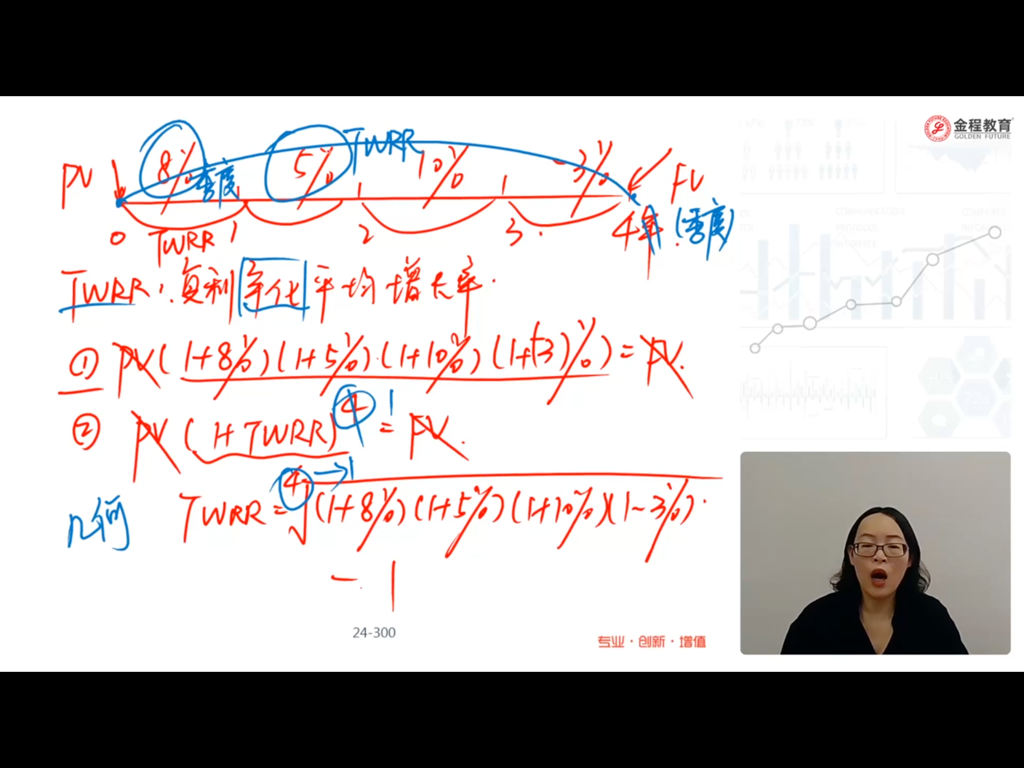 金程教育
GOLDEN FUTURE
PV 8% 季度 5% TWRR 10% -3% FV
0 TWRR 1 2 3. 4年 (季度)
TWRR: 复利年化平均增长率.
① PV(1+8%)(1+5%)(1+10%)(1+(-3)%)=FV.
② PV(1+TWRR)^4 1 = FV.
几何 TWRR = 4→1 √(1+8%)(1+5%)(1+10%)(1-3%).
- 1
24-300
专业·创新·增值